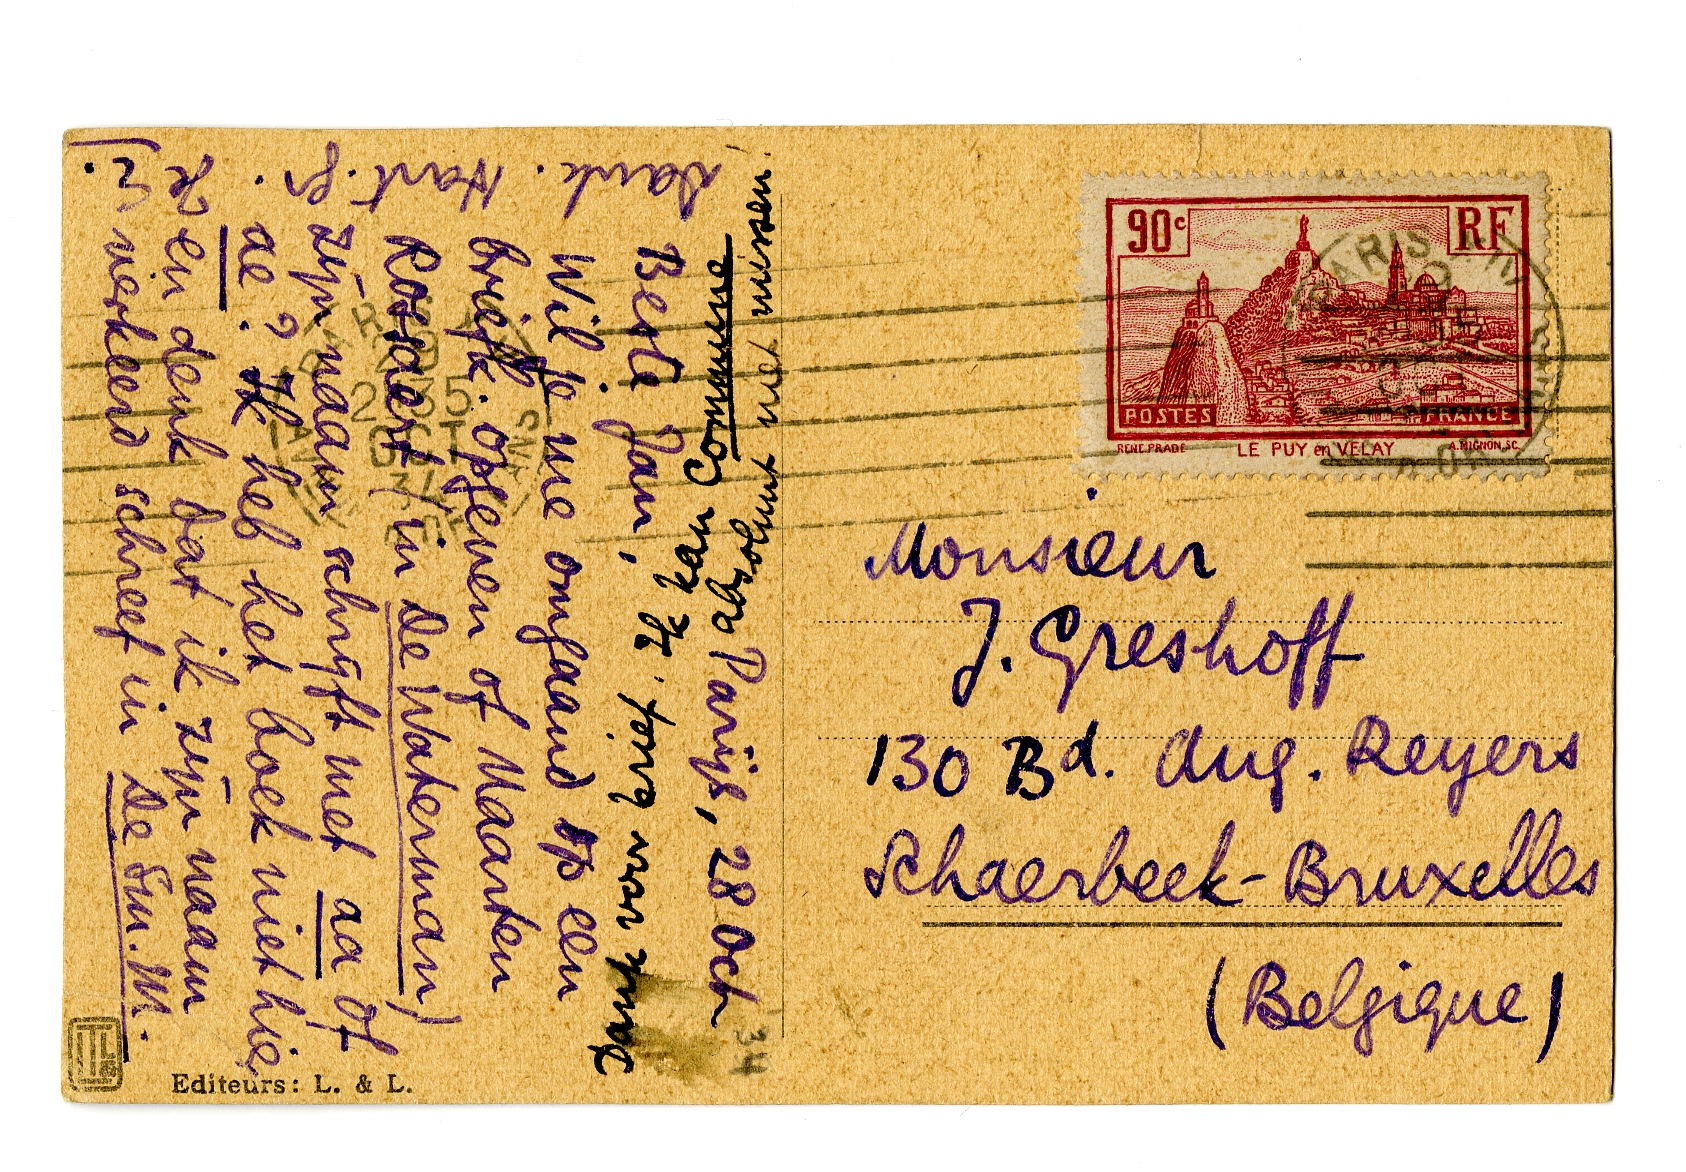 Parijs, 28 Oct.
34
Beste Jan,
Wil je me omgaand op een
briefk. opgeven of Maarten
Rossaert (in De Waterman)
zijn naam schrijft met aa of
ae? Ik heb het boek niet hier
en denk dat ik zijn naam
verkeerd schreef in De Sm. M.
Dank. Hart. gr.
je
E.
Dank voor brief. Ik kan Commune
absoluut niet missen!
Editeurs: L. & L.
90c
RF
POSTES
FRANCE
RENE.PRADE
LE PUY en VELAY
A.MIGNON.SC.
PARIS
35
OCT
Monsieur
J. Greshoff
130 Bd. Aug. Reyers
Schaerbeek-Bruxelles
(Belgique)